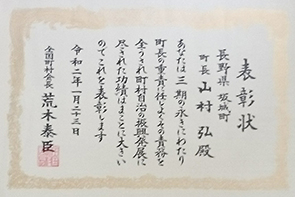 表彰状
長野県坂城町
町長 山村弘殿
あなたは三期の永きにわたり
町長の重責に任じよくその責務を
全うされ町村自治の振興発展に
尽された功績はまことに大きい
のでこれを表彰します
令和二年一月二十三日
全国町村会長 荒木泰臣